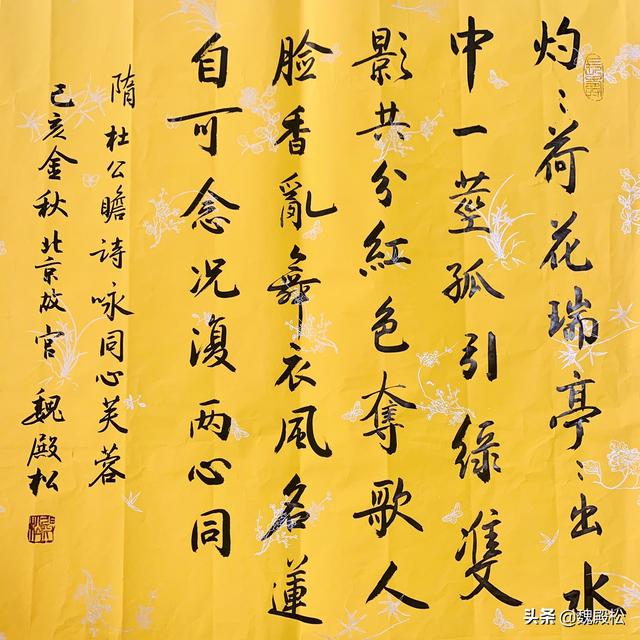 灼〻荷花瑞亭〻出水
中一莖孤引綠雙
影共分紅色奪歌人
臉香亂舞衣風名蓮
自可念况復两心同
隋杜公瞻詩咏同心芙蓉
己亥金秋北京故宫魏殿松
头条@魏殿松